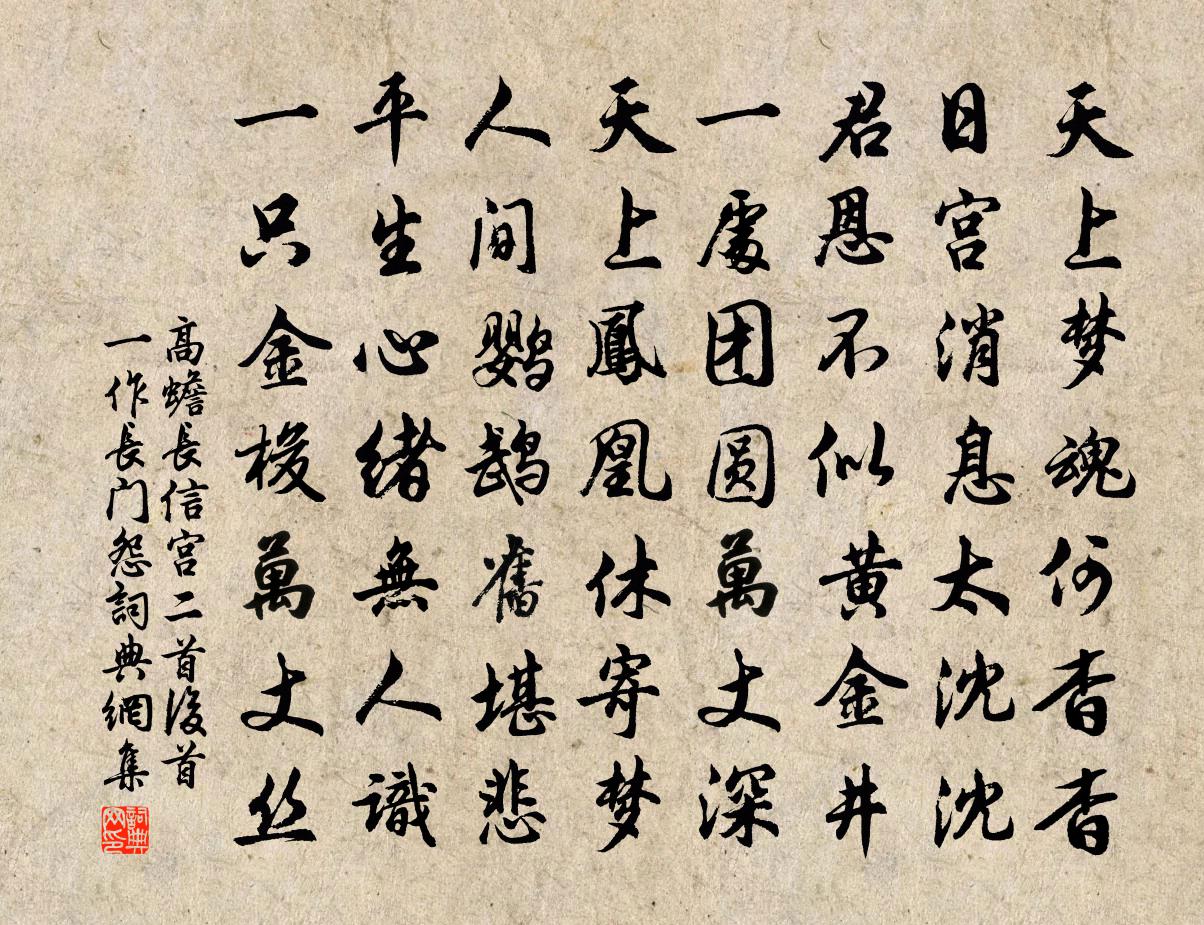 天上梦魂何杳杳
日宫消息太沈沈
君恩不似黄金井
一處团圆萬丈深
天上鳳凰休寄梦
人间鹦鹉舊堪悲
平生心绪無人識
一只金梭萬丈丝
高蟾長信宫二首後首
一作長门怨詞典網集
詞典网印